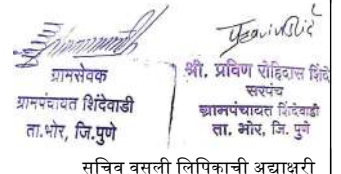 ग्रामसेवक
ग्रामपंचायत शिंदेवाडी
ता.भोर, जि.पुणे
श्री. प्रविण रोहिदास शिंदे
सरपंच
ग्रामपंचायत शिंदेवाडी
ता. भोर, जि. पुणे
सचिव वसली लिपिकाची अद्याक्षरी